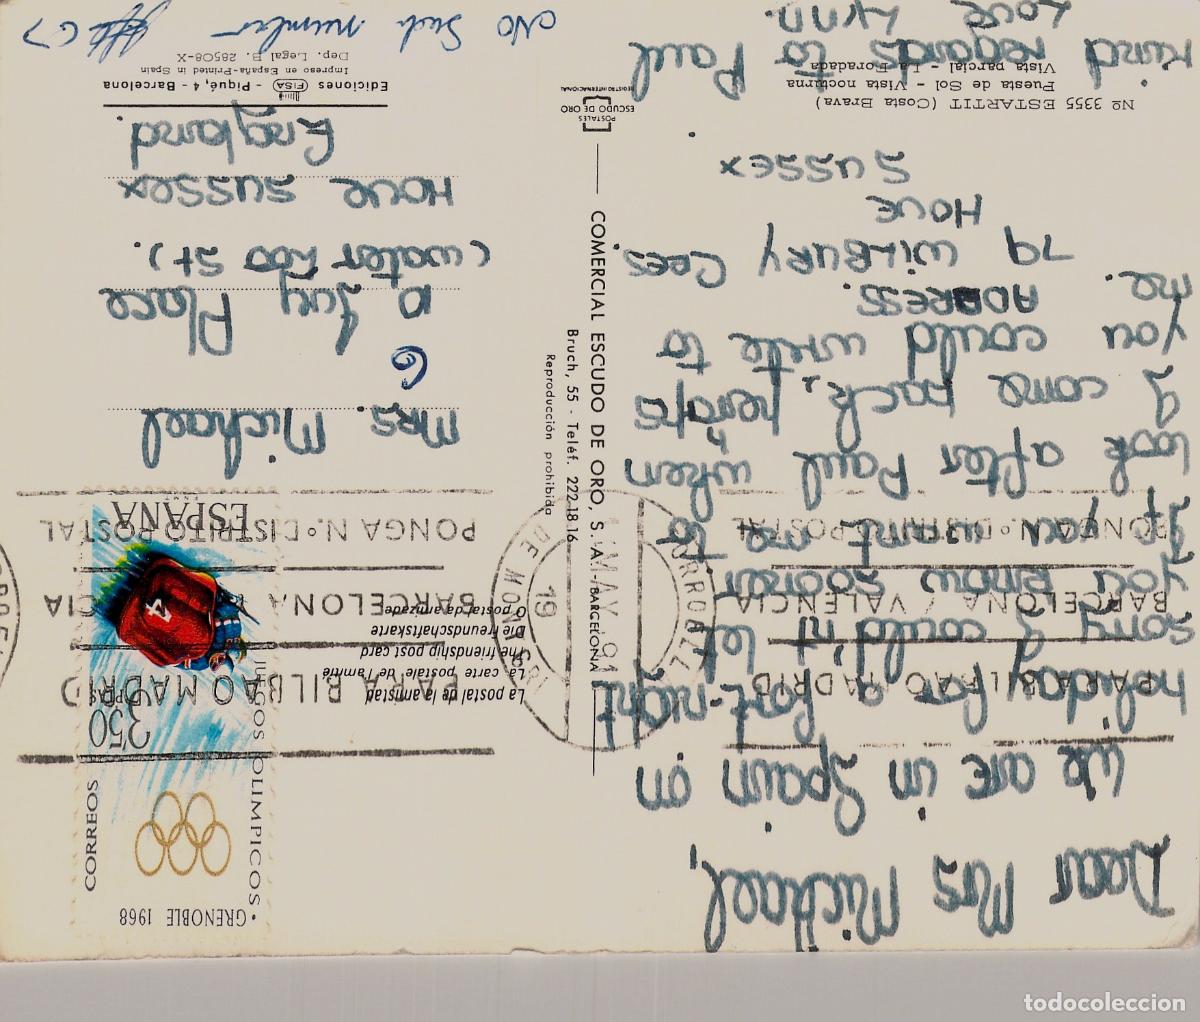 Dear Mrs Michael,
We are in Spain on
holiday for a fort-night
sorry I could n't let
you know sooner
If you want me to
look after Paul when
I come back, perhaps
you could write to
me.
ADDRESS.
79 WILBURY CRES.
HOVE
SUSSEX
Nº 3355 ESTARTIT (Costa Brava)
Puesta de Sol - Vista nocturna
Vista parcial - La Foradada
kind regards to Paul
Love
Lynn.
COMERCIAL ESCUDO DE ORO, S. A. - BARCELONA
Bruch, 55 - Teléf. 222-18-16
Reproducción prohibida
POSTALES
ESCUDO DE ORO
REGISTRO INTERNACIONAL
GRENOBLE 1968
CORREOS
JUEGOS OLIMPICOS
350
PTS
4
ESPAÑA
La postal de la amistad
La carte postale de l'amitié
The friendship post card
Die freundschaftskarte
O postal da amizade
PARA BILBAO MADRID
BARCELONA / VALENCIA
PONGA Nº DISTRITO POSTAL
PARA BILBAO MADRID
BARCELONA / VALENCIA
PONGA Nº DISTRITO POSTAL
TORROELLA
DE MONTGRI
19
MAY
Mrs. Michael
6
10 Ivy Place
(Waterloo St).
HOVE SUSSEX
England.
Ediciones FISA - Piqué, 4 - Barcelona
Impreso en España-Printed in Spain
Dep. Legal B. 28508-X
No Such number
todocoleccion